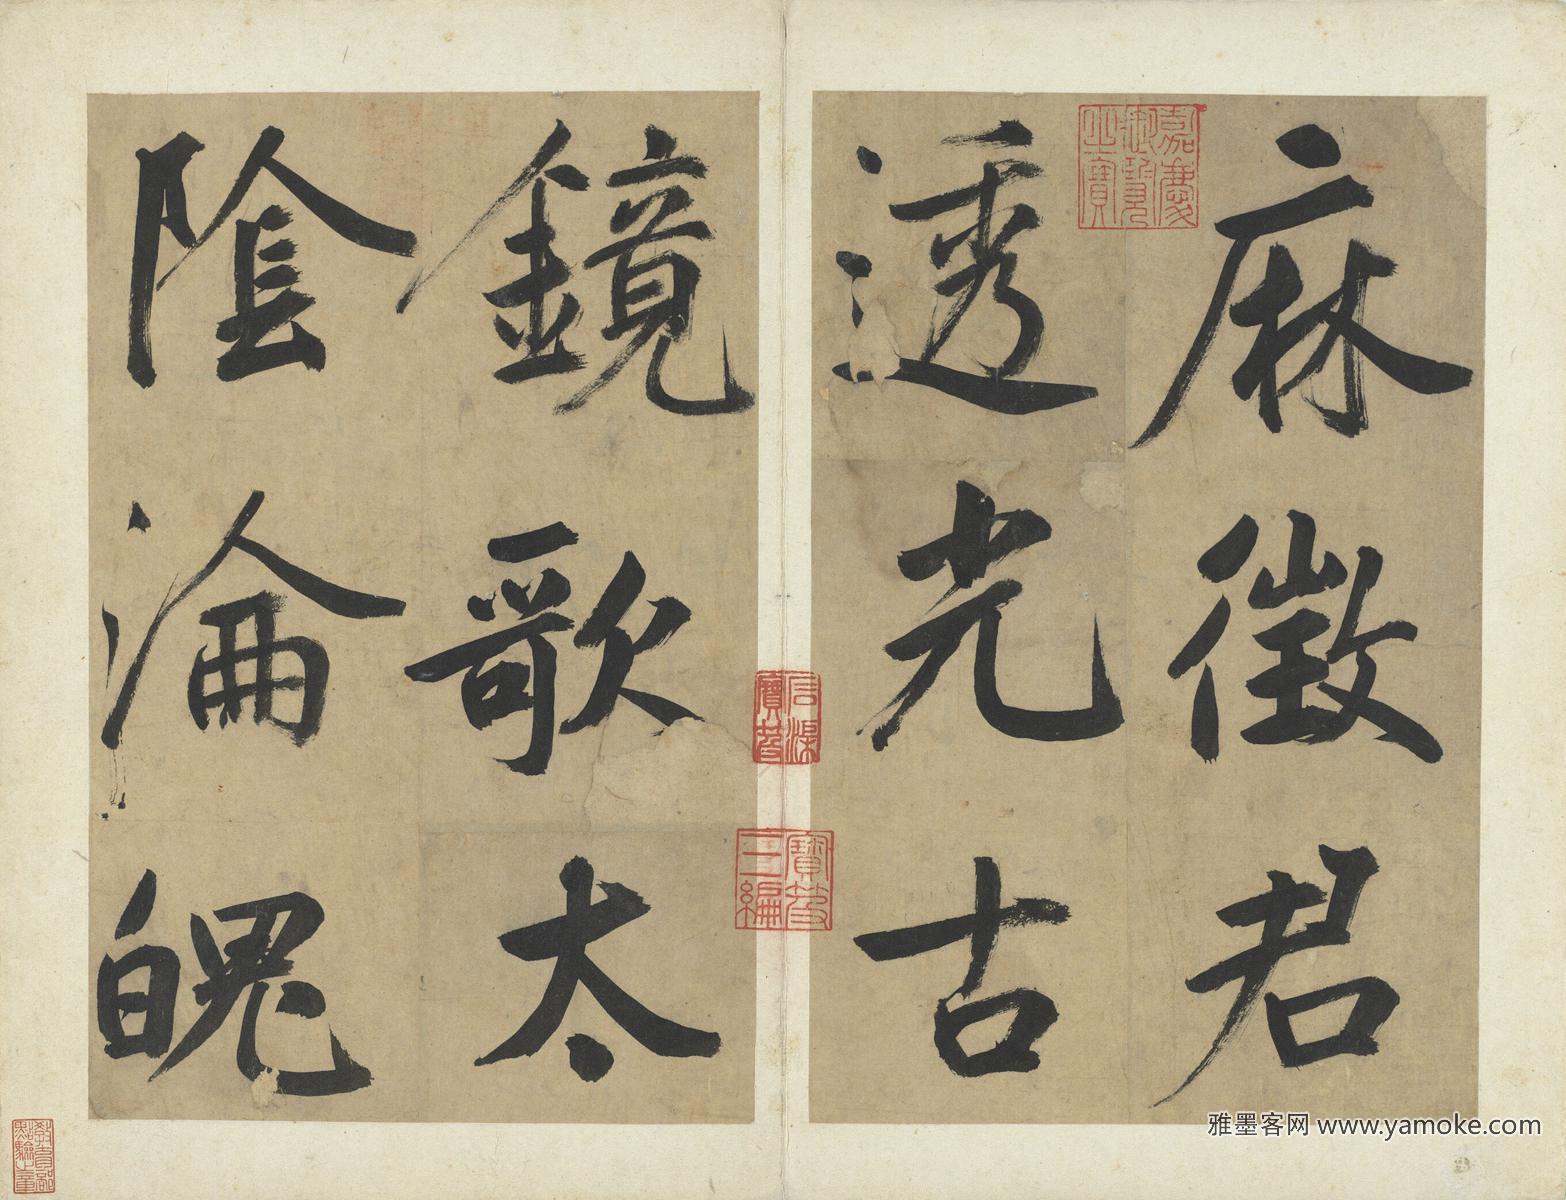 麻徵君
透光古
鏡歌太
陰淪魄
嘉慶
御覽
之寶
石渠
寶笈
寶笈
三編
教育部
點驗之章
雅墨客网 www.yamoke.com